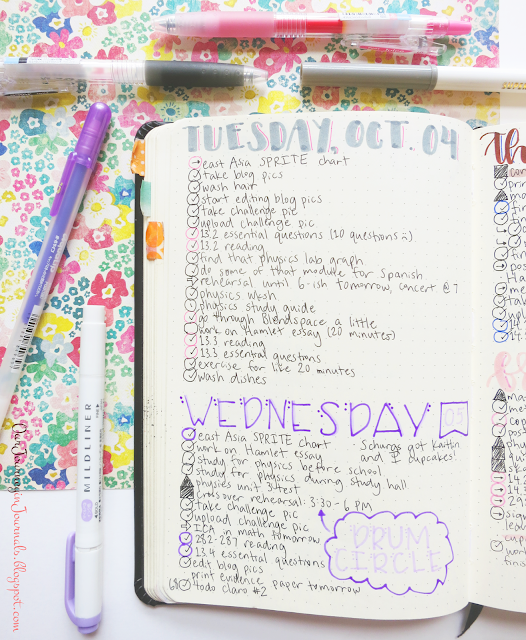 TUESDAY, OCT. 04
east Asia SPRITE chart
take blog pics
wash hair
start editing blog pics
take challenge pic
upload challenge pic
13.2 essential questions (20 questions :))
13.2 reading
find that physics lab graph
do some of that module for Spanish
rehearsal until 6-ish tomorrow, concert @ 7
physics wksh
physics study guide
go through Blendspace a little
work on Hamlet essay (20 minutes)
13.3 reading
13.3 essential questions
exercise for like 20 minutes
wash dishes
WEDNESDAY 05
east Asia SPRITE chart
work on Hamlet essay
study for physics before school
study for physics during study hall
physics unit 3 test
crossover rehearsal: 3:30-6 PM
take challenge pic
upload challenge pic
ICA in math tomorrow
282-287 reading
13.4 essential questions
edit blog pics
print evidence paper tomorrow
todo claro #2
- Schurgs got Kaitlin
and I cupcakes!
DRUM
CIRCLE
MILDLINER
OurJourneyinJournals.blogspot.com